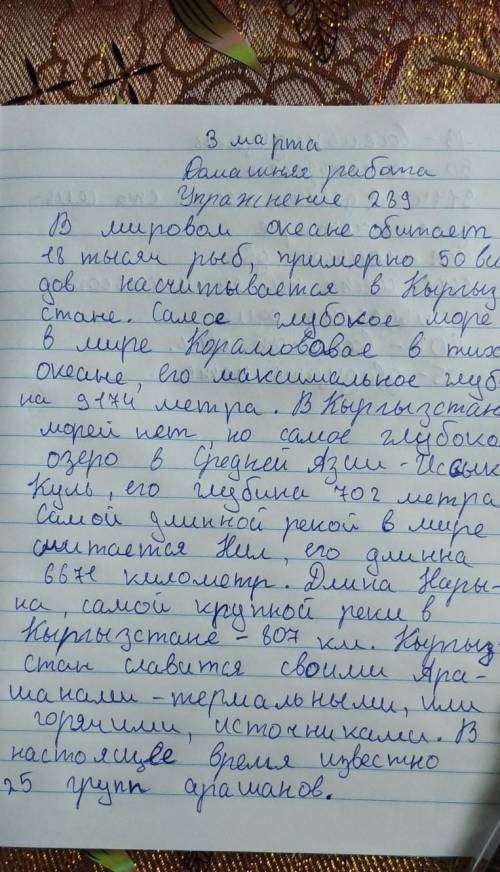 3 марта
Домашняя работа
Упражнение 239
В мировом океане обитает
18 тысяч рыб, примерно 50 ви
дов насчитывается в Кыргыз
стане. Самое глубокое море
в мире. Коралловое в тих
океане, его максимальное глуб
на 9174 метра. В Кыргызстан
морей нет, но самое глубоко
озеро в Средней Азии - Иссык
Куль, его глубина 702 метра
Самой длинной рекой в мире
считается Нил, его длинна
6671 километр. Длина Нары-
на, самой крупной реки в
Кыргызстане - 807 км. Кыргыз-
стан славится своими Ара-
шанами - термальными, или
горячими, источниками. В
настоящее время известно
25 групп арашанов.